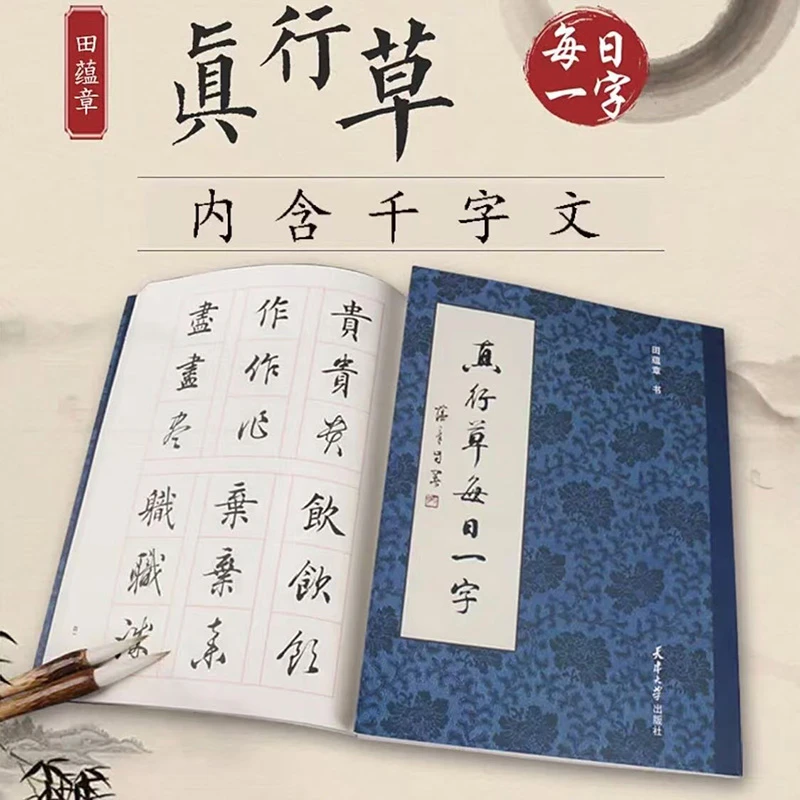 田蕴章
真行草
每日
一字
内含千字文
貴 作 盡
貴 作 盡
貴 作 盡
飲 棄 職
飲 棄 職
飲 棄 職
真行草每日一字
蕴章自署
田蕴章 书
天津大学出版社